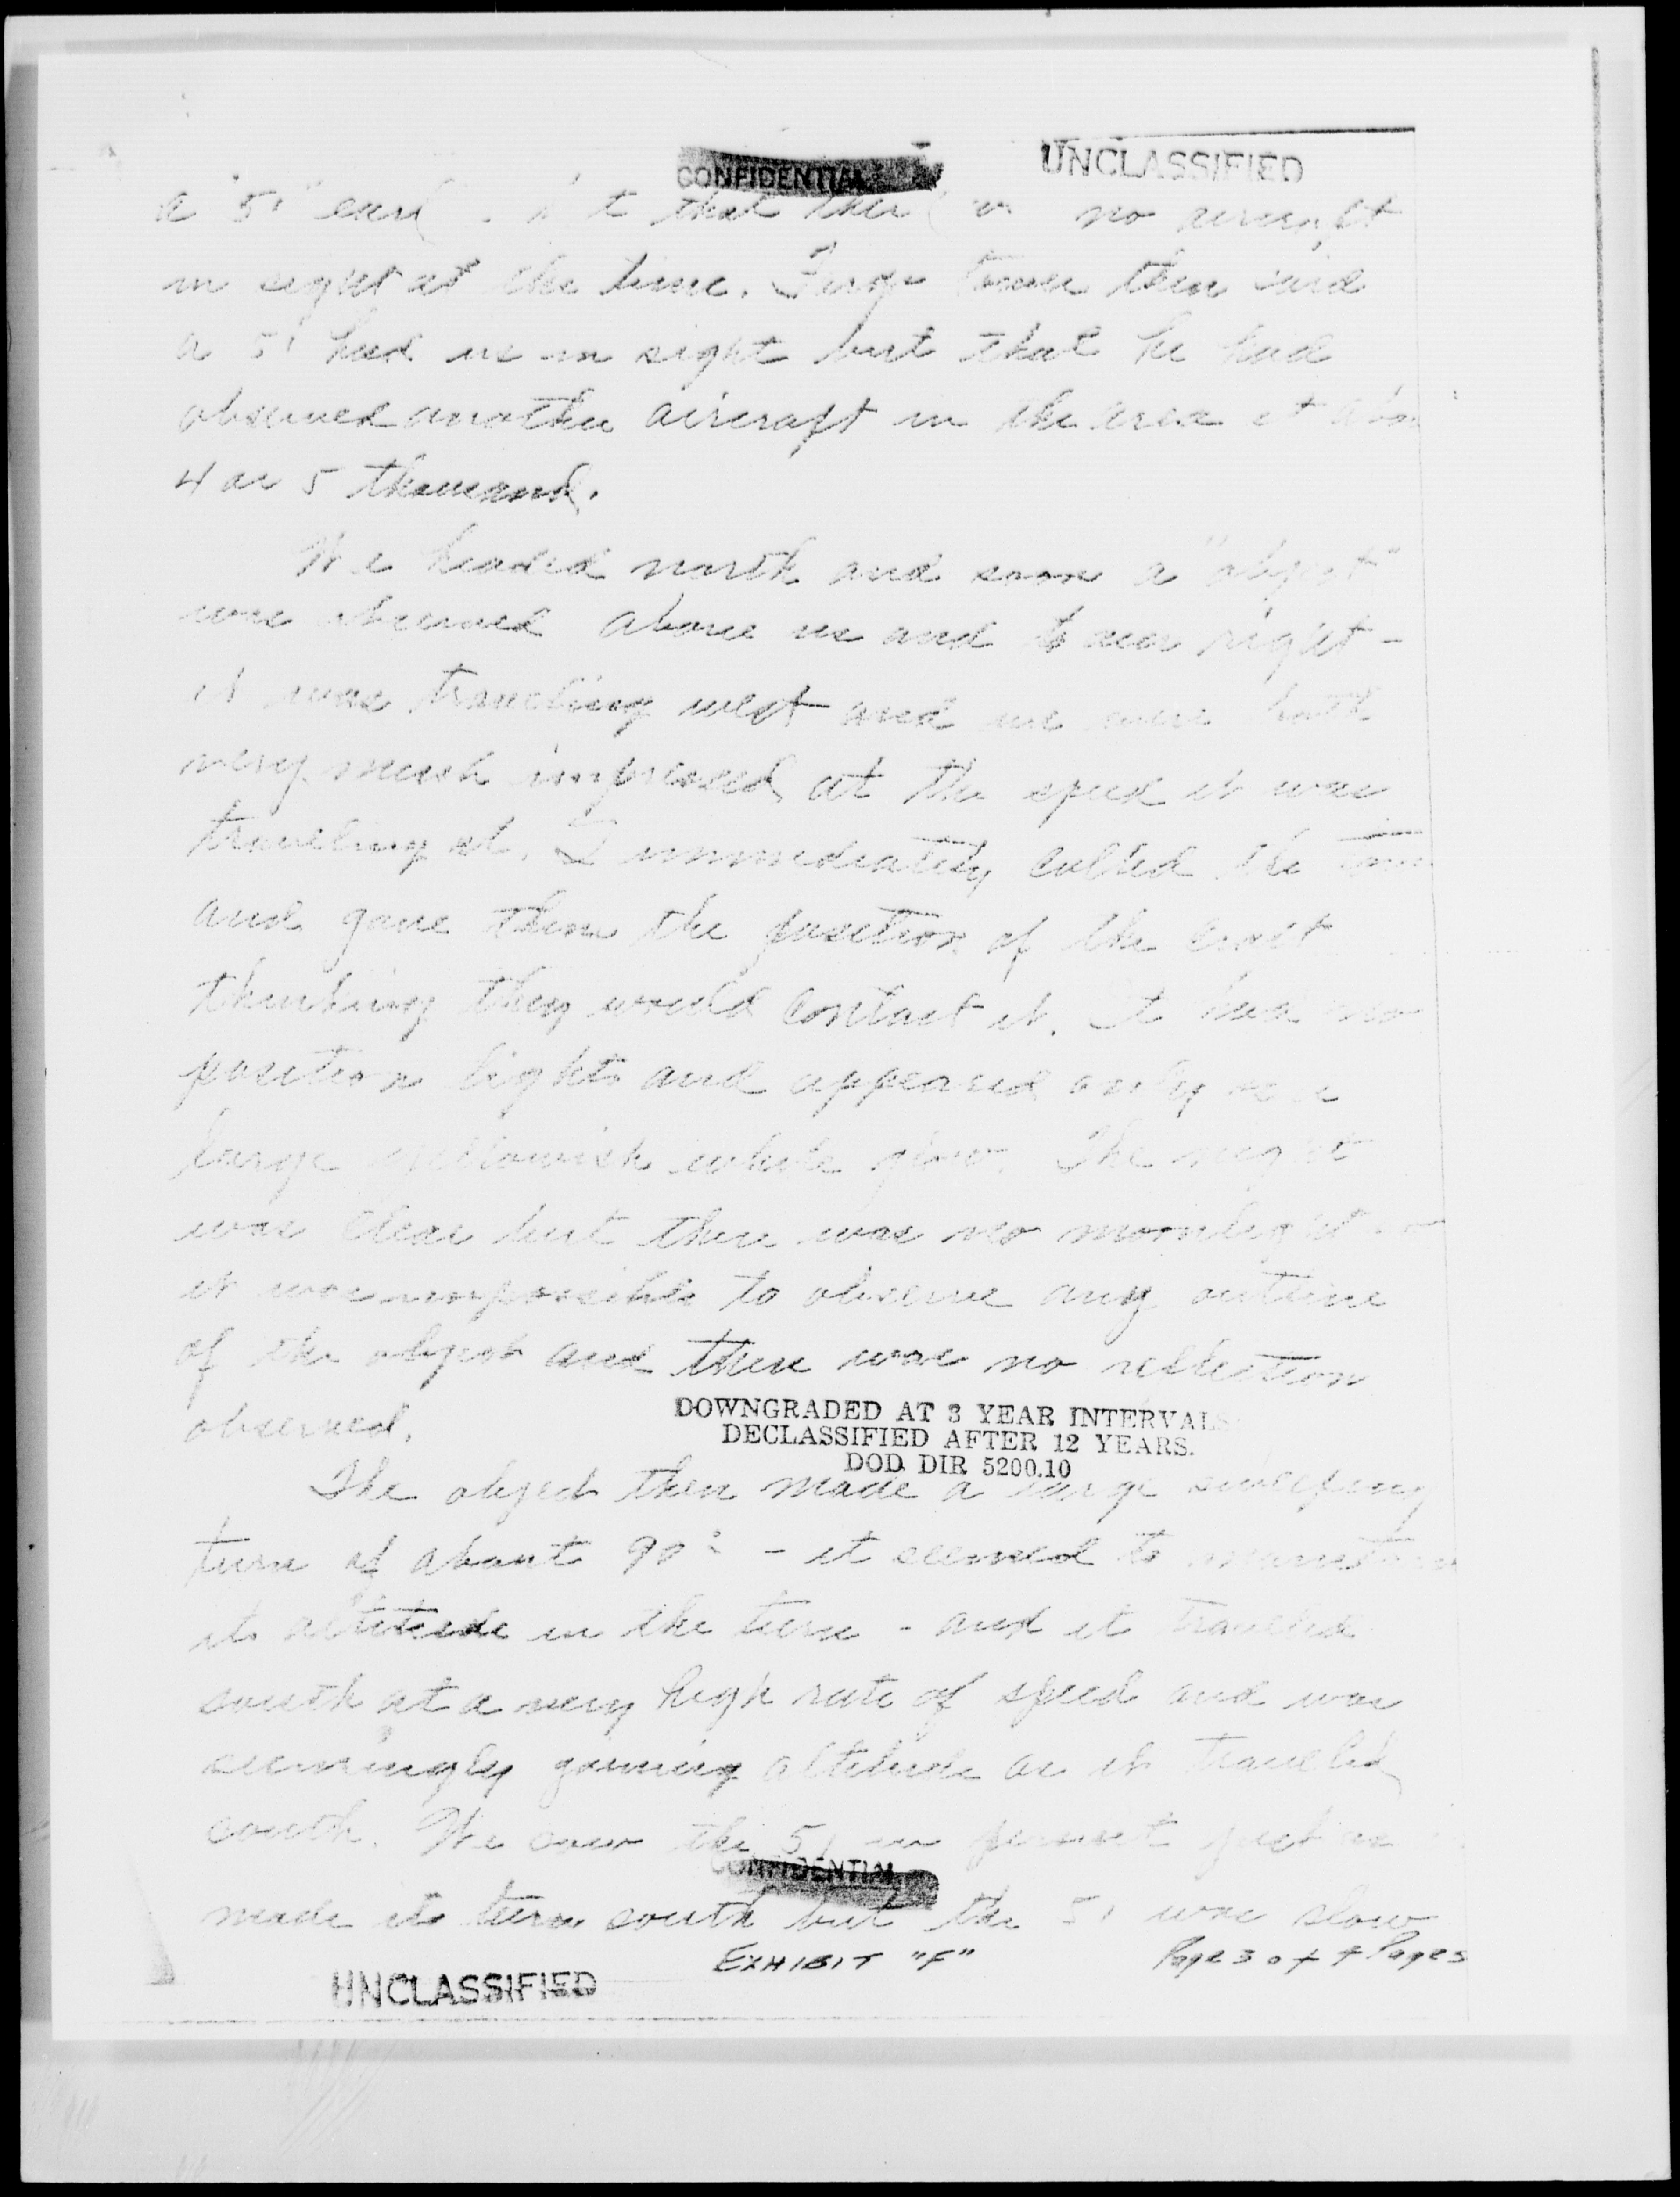 CONFIDENTIAL
UNCLASSIFIED
a "51" that no aircraft
in sight at the time. Fargo tower then said
a 51 had us in sight but that he had
observed another aircraft in the area at
4 or 5 thousand.
We headed north and soon a "object"
was observed above us and to our right -
it was traveling west and we were both
very much impressed at the speed it was
traveling at. I immediately called the
and gave them the position of the craft
thinking they would contact it. It had no
position lights and appeared only
large yellowish white glow. The night
was clear but there was no moonlight
it was impossible to observe any outline
of the object and there was no reflection
observed.
DOWNGRADED AT 3 YEAR INTERVALS
DECLASSIFIED AFTER 12 YEARS.
DOD DIR 5200.10
The object then made a large sweeping
turn of about 90° - it seemed to maintain
its altitude in the turn - and it traveled
south at a very high rate of speed and was
seemingly gaining altitude as it traveled
south. We saw the 51 in pursuit just as
CONFIDENTIAL
made its turn south but the 51 was slow
EXHIBIT "F"
Page 3 of Pages
UNCLASSIFIED